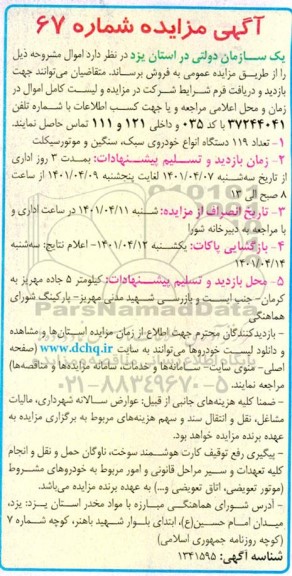 آگهی مزایده شماره ۶۷
یک سازمان دولتی در استان یزد در نظر دارد اموال مشروحه ذیل
را از طریق مزایده عمومی به فروش برساند. متقاضیان می‌توانند جهت
بازدید و دریافت فرم شرایط شرکت در مزایده و لیست کامل اموال در
زمان و محل اعلامی مراجعه و یا جهت کسب اطلاعات با شماره تلفن
۳۷۲۴۴۰۴۱ با کد ۰۳۵ و داخلی ۱۲۱ و ۱۱۱ تماس حاصل نمایند.
۱- تعداد ۱۱۹ دستگاه انواع خودروی سبک، سنگین و موتورسیکلت
۲- زمان بازدید و تسلیم پیشنهادات: بمدت ۳ روز اداری
از تاریخ سه‌شنبه ۱۴۰۱/۰۴/۰۷ لغایت پنجشنبه ۱۴۰۱/۰۴/۰۹ از ساعت
۸ صبح الی ۱۳
۳- تاریخ انصراف از مزایده: شنبه ۱۴۰۱/۰۴/۱۱ در ساعت اداری و
با مراجعه به دبیرخانه شورا
۴- بازگشایی پاکات: یکشنبه ۱۴۰۱/۰۴/۱۲- اعلام نتایج: سه‌شنبه
۱۴۰۱/۰۴/۱۴
۵- محل بازدید و تسلیم پیشنهادات: کیلومتر ۵ جاده مهریز به
کرمان- جنب ایست و بازرسی شهید مدنی مهریز- پارکینگ شورای
هماهنگی
- بازدیدکنندگان محترم جهت اطلاع از زمان مزایده استان‌ها و مشاهده
و دانلود لیست خودروها می‌توانند به سایت www.dchq.ir (صفحه
اصلی- منوی سایت- سامانه‌ها و خدمات، سامانه مزایده‌ها و مناقصه‌ها)
مراجعه نمایند.
- ضمنا کلیه هزینه‌های جانبی از قبیل: عوارض سالانه شهرداری، مالیات
مشاغل، نقل و انتقال سند و سهم هزینه‌های مربوط به برگزاری مزایده به
عهده برنده مزایده خواهد بود.
- پیگیری رفع توقیف کارت هوشمند سوخت، ناوگان حمل و نقل و انجام
کلیه تعهدات و سیر مراحل قانونی و امور مربوط به خودروهای مشروط
(موتور تعویضی، اتاق تعویضی و...) به عهده برنده مزایده می‌باشد.
- آدرس شورای هماهنگی مبارزه با مواد مخدر استان یزد: یزد،
میدان امام حسین(ع)، ابتدای بلوار شهید باهنر، کوچه شماره ۷
(کوچه روزنامه جمهوری اسلامی)
شناسه آگهی: ۱۳۴۱۵۹۵
ParsNamadData
۰۲۱-۸۸۳۴۹۶۷۰-۵